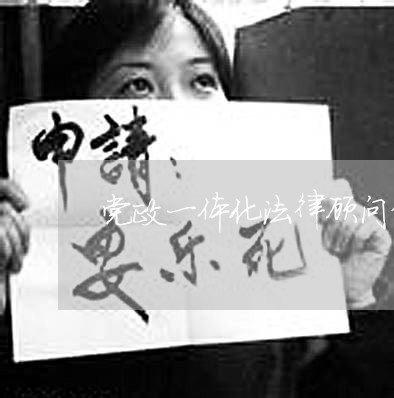 申請：
党政一体化法律顾问
要乐死